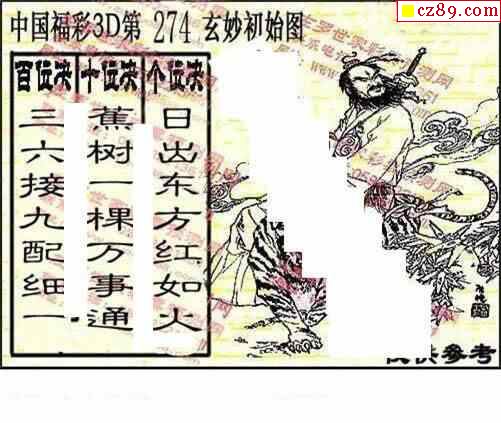 cz89.com
中国福彩3D第 274 玄妙初始图
百位决
三六接九配细一
十位决
蕉树一棵万事通
个位决
日出东方红如火
供参考